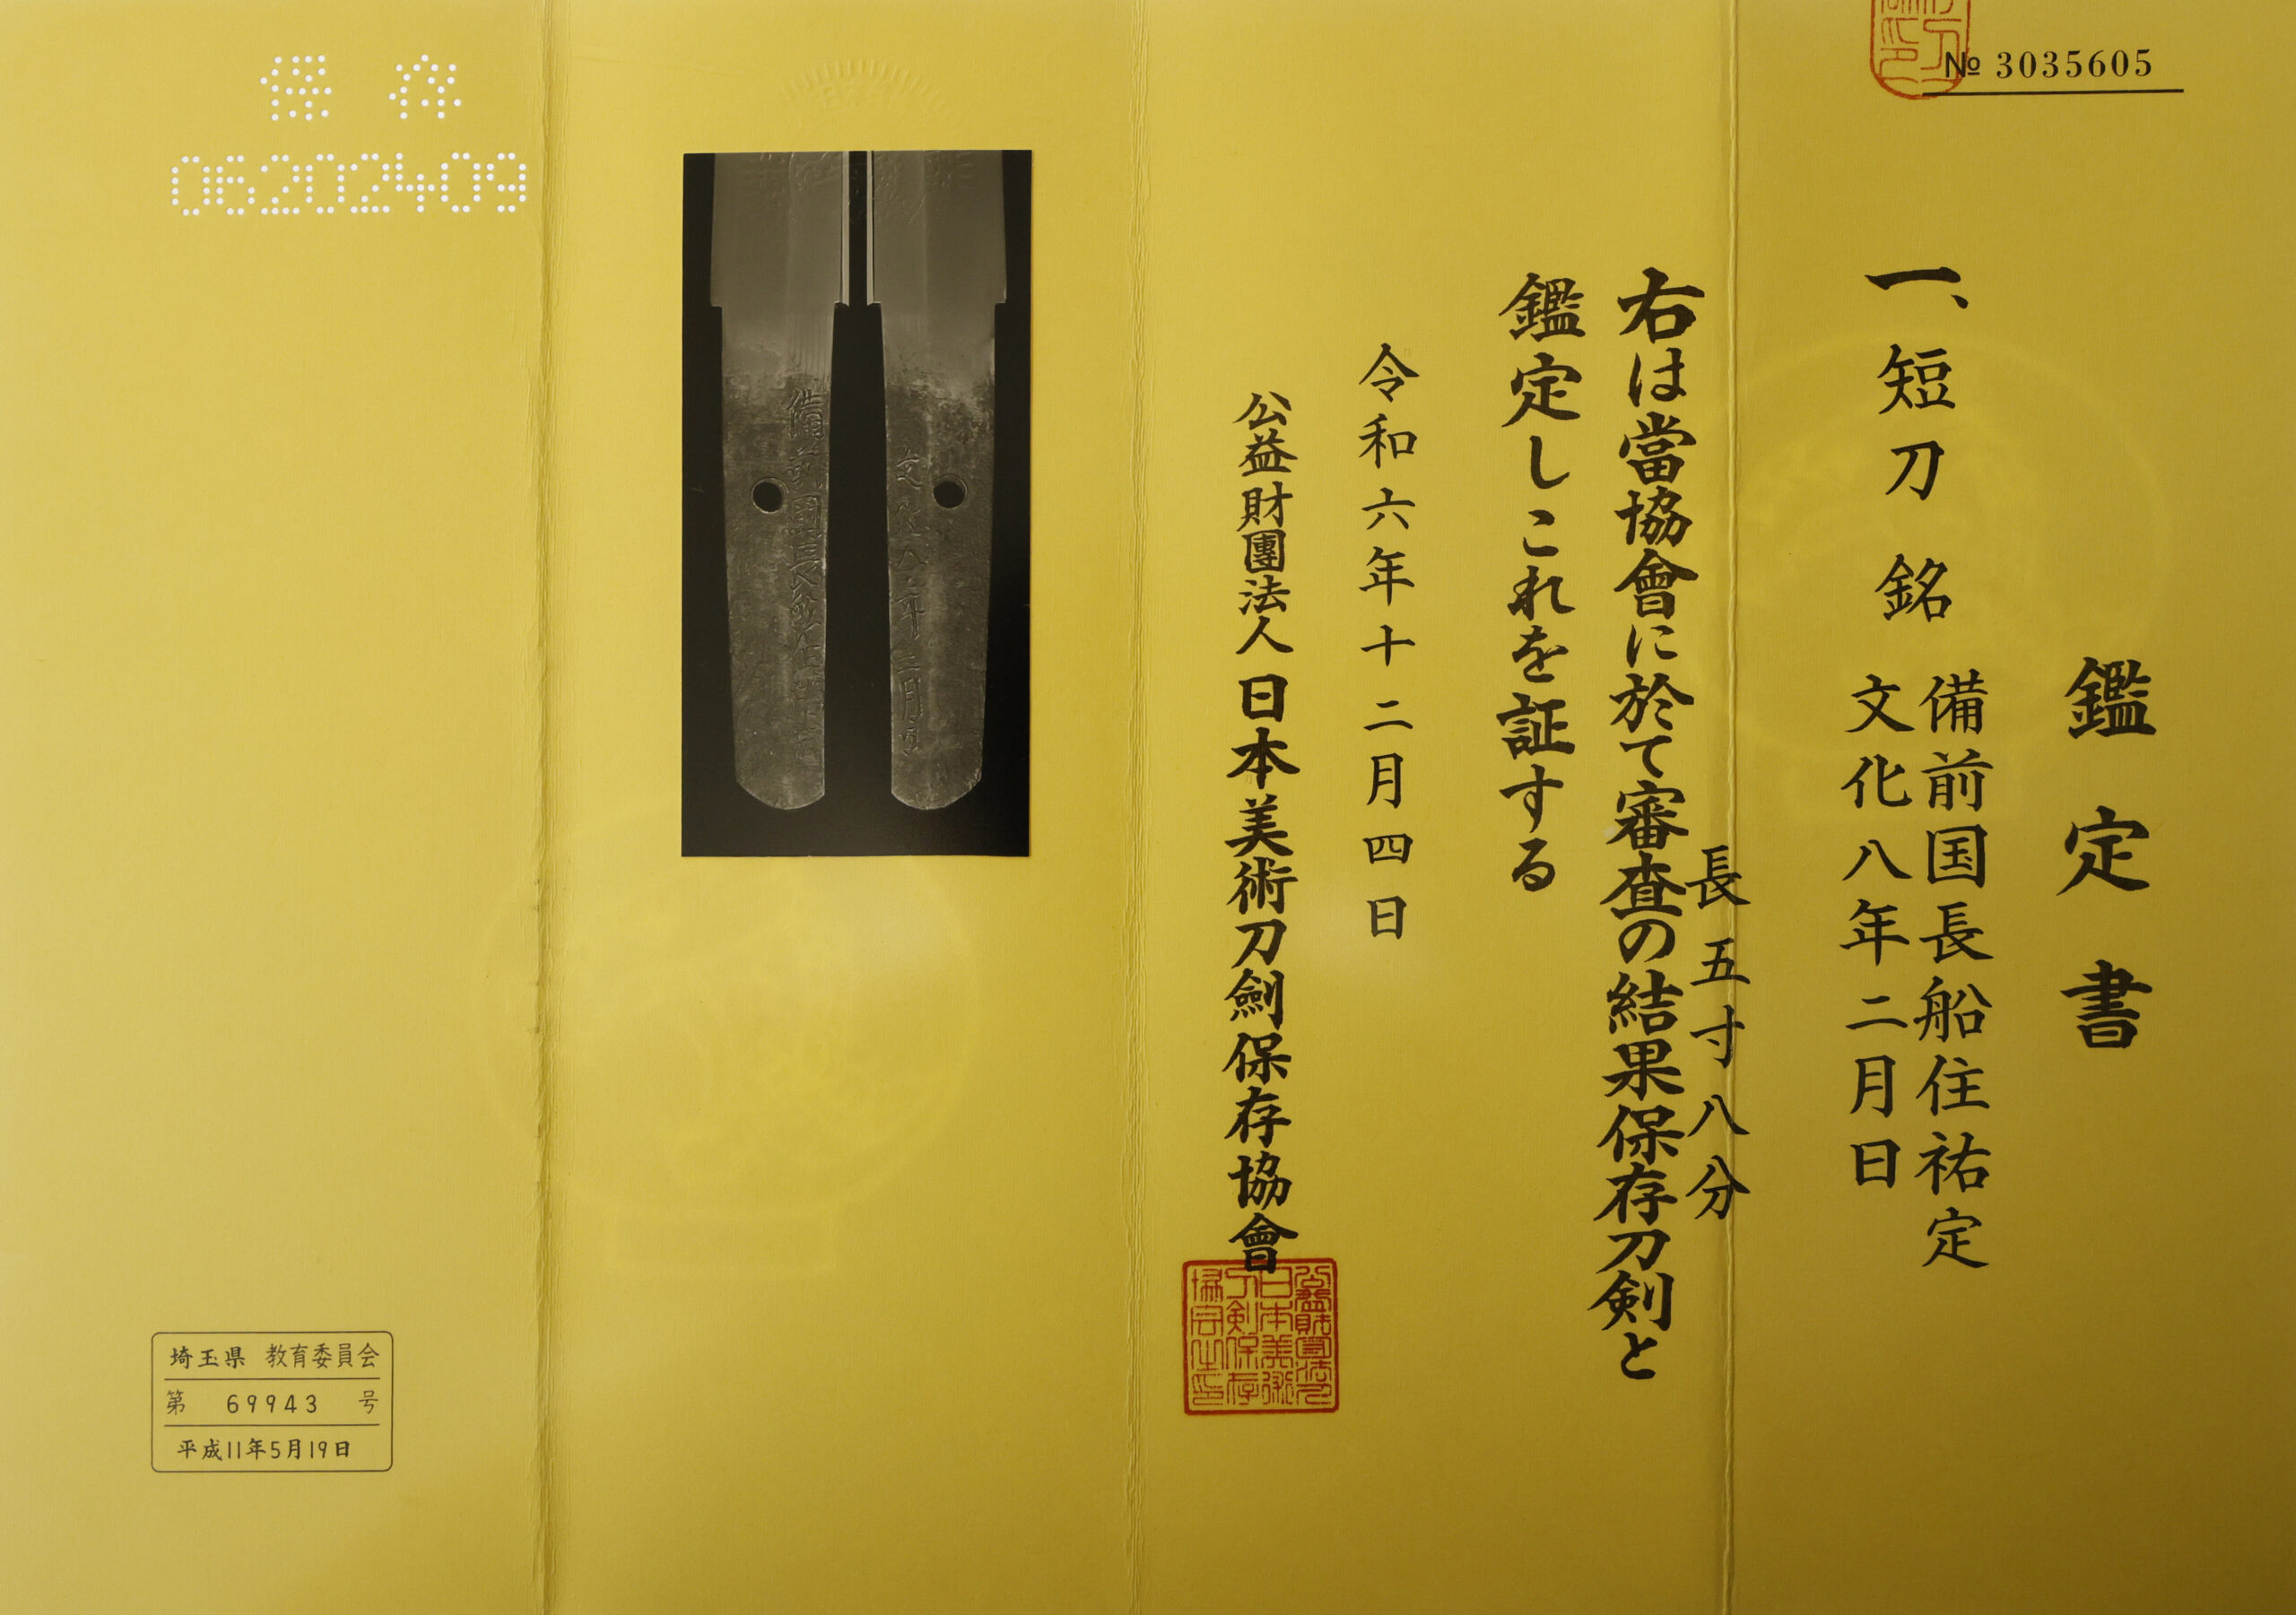 № 3035605
鑑定書
一、短刀 銘 備前国長船住祐定
文化八年二月日
長五寸八分
右は當協會に於て審査の結果保存刀剣と
鑑定しこれを証する
令和六年十二月四日
公益財團法人日本美術刀劍保存協會
保存
06202409
備前國長船住祐定
文化八年二月日
埼玉県 教育委員会
第 69943 号
平成11年5月19日